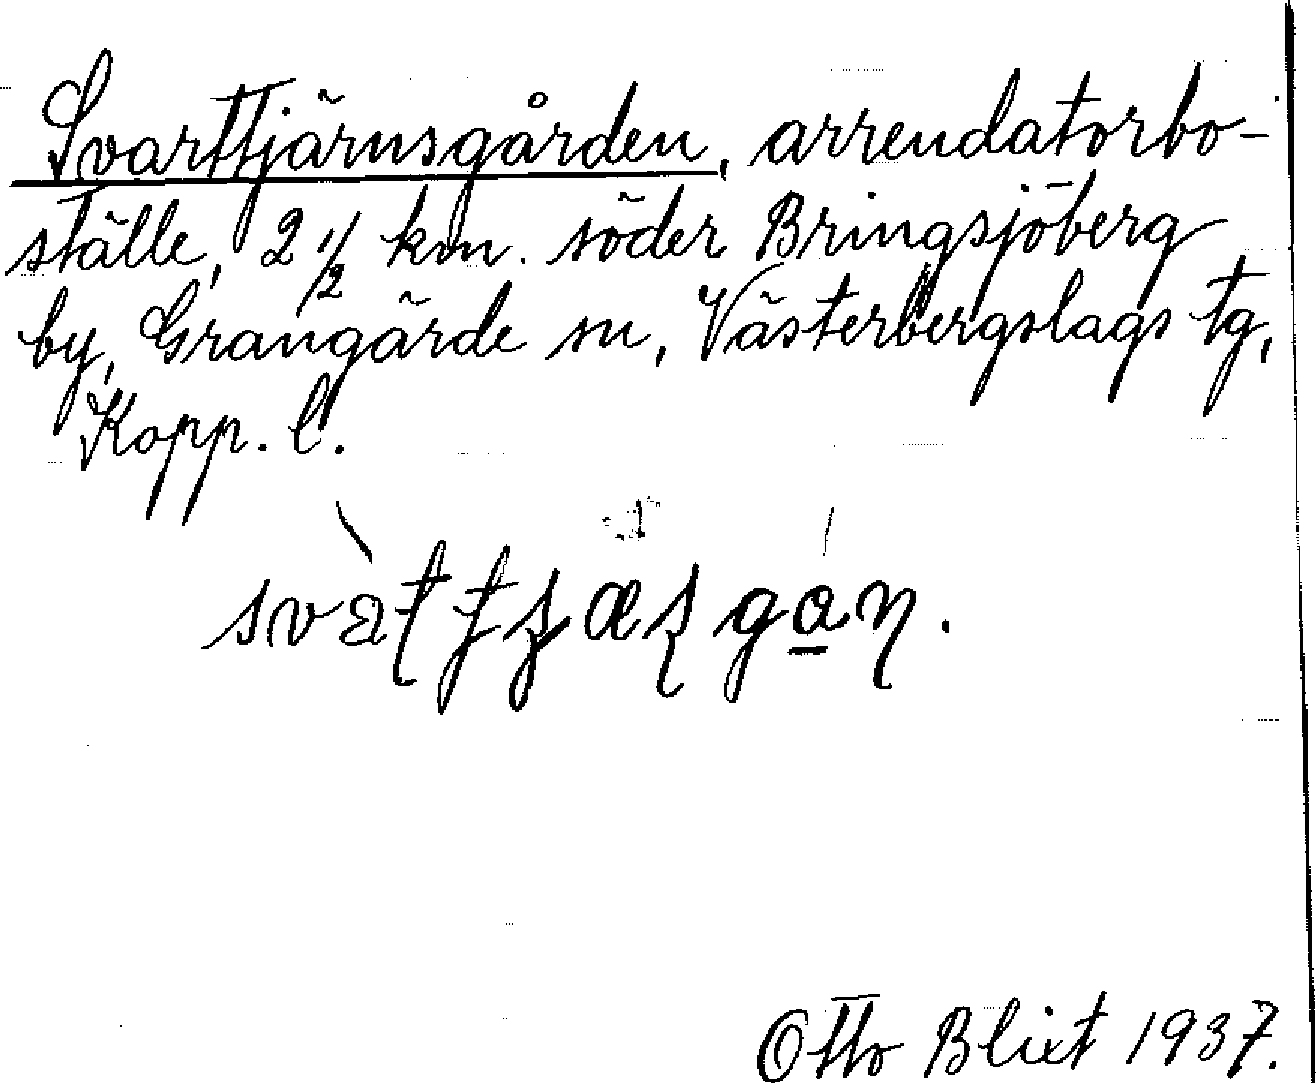 Svarttjärnsgården, arrendatorbo-
ställe, 2 1/2 km. söder Bringsjöberg
by, Grangärde sn, Västerbergslags tg,
Kopp. l.
Otto Blixt 1937.